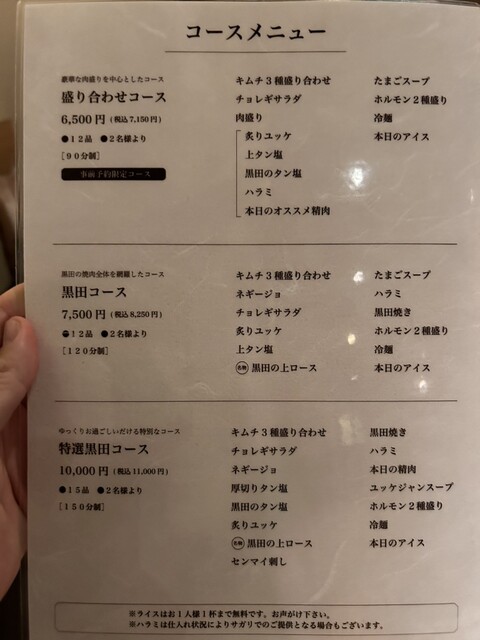 コースメニュー
豪華な肉盛りを中心としたコース
盛り合わせコース
6,500円 (税込7,150円)
●12品 ●2名様より
[90分制]
事前予約限定コース
キムチ3種盛り合わせ
チョレギサラダ
肉盛り
炙りユッケ
上タン塩
黒田のタン塩
ハラミ
本日のオススメ精肉
たまごスープ
ホルモン2種盛り
冷麺
本日のアイス
黒田の焼肉全体を網羅したコース
黒田コース
7,500円 (税込8,250円)
●12品 ●2名様より
[120分制]
キムチ3種盛り合わせ
ネギージョ
チョレギサラダ
炙りユッケ
上タン塩
名物 黒田の上ロース
たまごスープ
ハラミ
黒田焼き
ホルモン2種盛り
冷麺
本日のアイス
ゆっくりお過ごしいだける特別なコース
特選黒田コース
10,000円 (税込11,000円)
●15品 ●2名様より
[150分制]
キムチ3種盛り合わせ
チョレギサラダ
ネギージョ
厚切りタン塩
黒田のタン塩
炙りユッケ
名物 黒田の上ロース
センマイ刺し
黒田焼き
ハラミ
本日の精肉
ユッケジャンスープ
ホルモン2種盛り
冷麺
本日のアイス
※ライスはお1人様1杯まで無料です。お声がけ下さい。
※ハラミは仕入れ状況によりサガリでのご提供となる場合もございます。